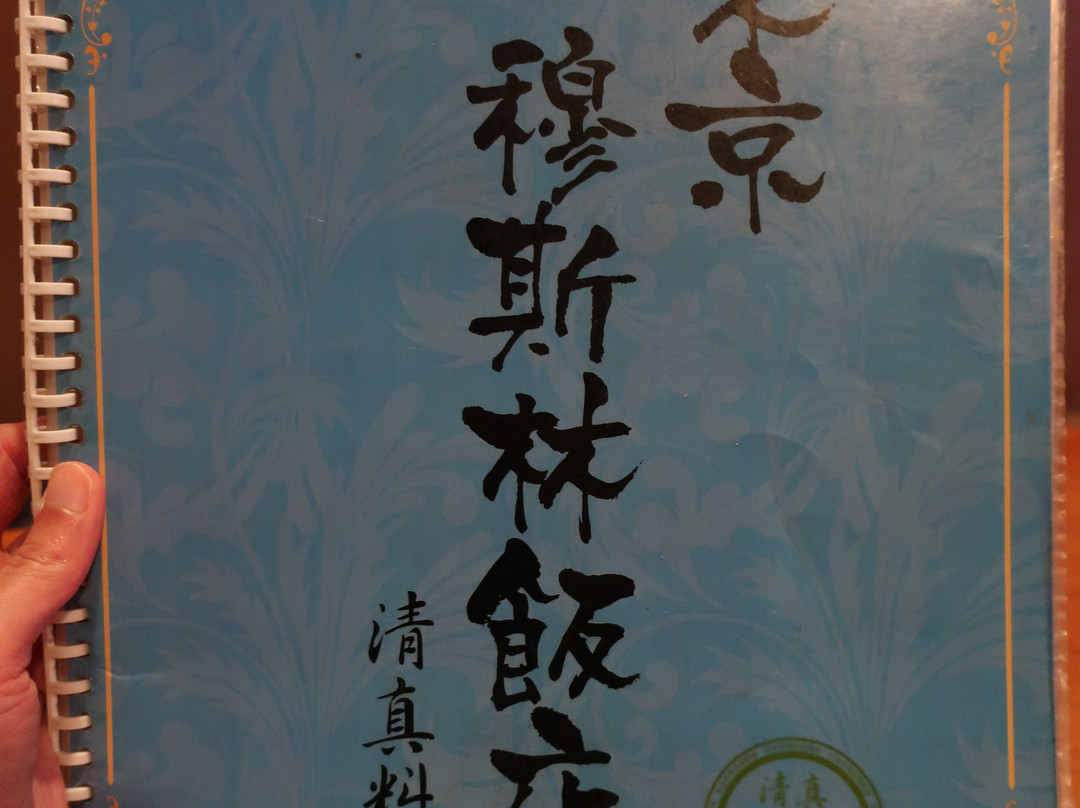 京
穆斯林飯店
清真料
清真